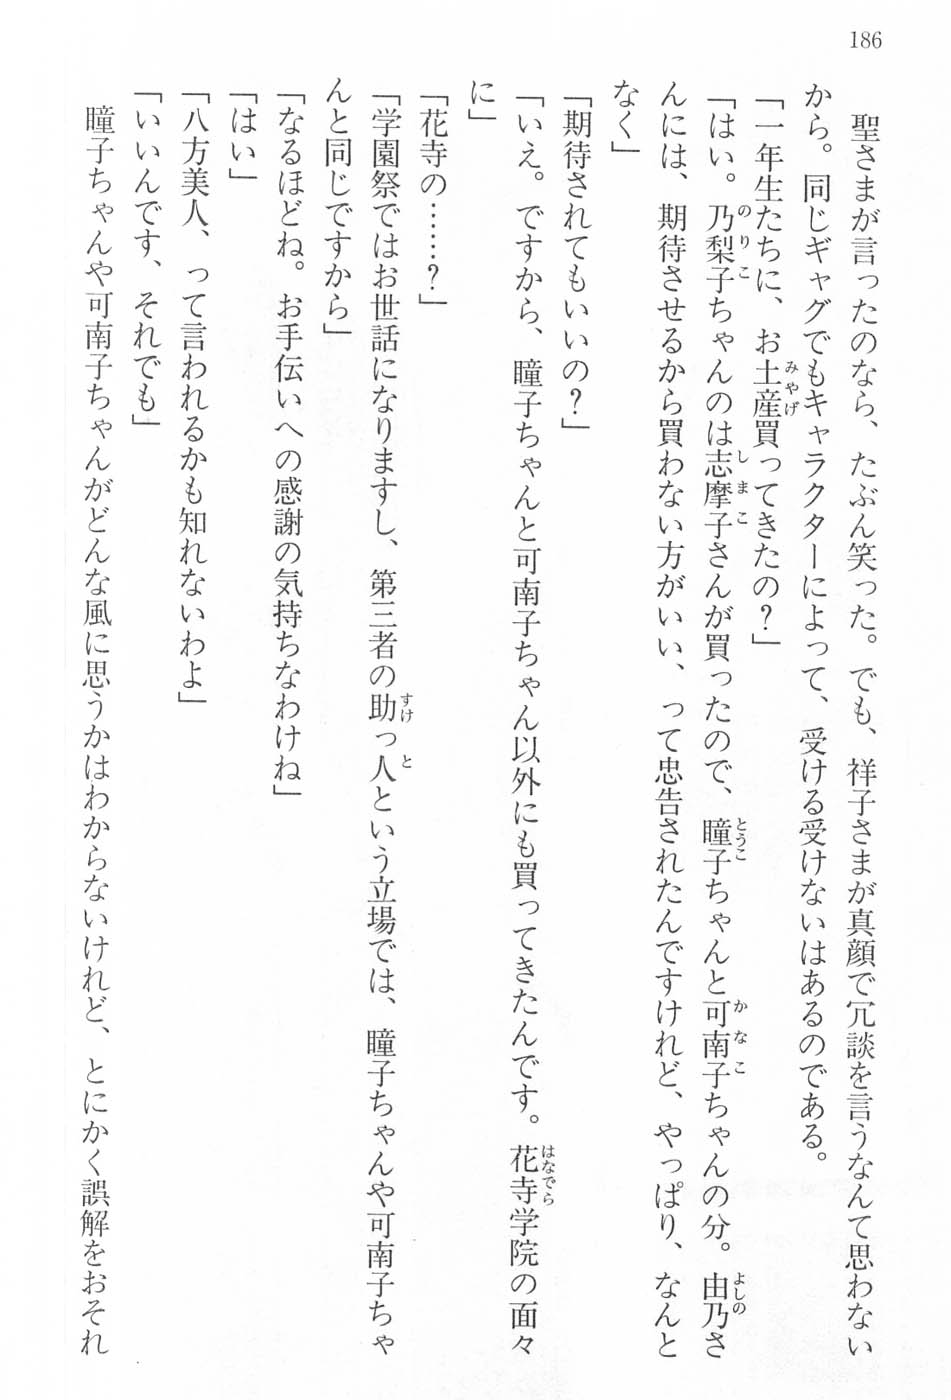 186
聖さまが言ったのなら、たぶん笑った。でも、祥子さまが真顔で冗談を言うなんて思わない
から。同じギャグでもキャラクターによって、受ける受けないはあるのである。
「一年生たちに、お土産買ってきたの？」
「はい。乃梨子ちゃんのは志摩子さんが買ったので、瞳子ちゃんと可南子ちゃんの分。由乃さ
んには、期待させるから買わない方がいい、って忠告されたんですけれど、やっぱり、なんと
なく」
「期待されてもいいの？」
「いえ。ですから、瞳子ちゃんと可南子ちゃん以外にも買ってきたんです。花寺学院の面々
に」
「花寺の……？」
「学園祭ではお世話になりますし、第三者の助っ人という立場では、瞳子ちゃんや可南子ちゃ
んと同じですから」
「なるほどね。お手伝いへの感謝の気持ちなわけね」
「はい」
「八方美人、って言われるかも知れないわよ」
「いいんです、それでも」
瞳子ちゃんや可南子ちゃんがどんな風に思うかはわからないけれど、とにかく誤解をおそれ